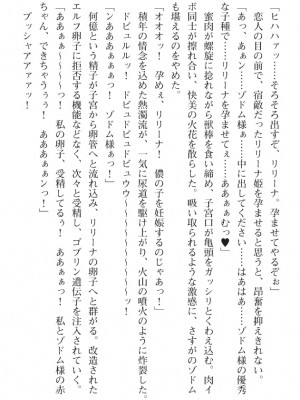 「ヒハハァッ……そろそろ出すぞ、リリーナ。孕ませてやるぞぉ」
恋人の目の前で、宿敵だったリリーナ姫を孕ませると思うと、昂奮を抑えきれない。
「あっ、あぁン……ゾドム様ぁ……中に出してください……はあはぁ……ゾドム様の優秀
な子種で……リリーナを孕ませてぇ……あぁむっつ♥」
蜜肉が螺旋に捻れながら獣棒を食い締め、子宮口が亀頭をガッシリとくわえ込む。肉イ
ボ同士が擦れ合い、快美の火花を散らした。吸い取られるような激感に、さすがのゾドム
も堪えるのをやめた。
「オオオッ！　孕めぇ、リリーナ！　儂の子を妊娠するのじゃあっ！」
積年の情念を込めた熱濁流が、一気に尿道を駆け上がり、火山の噴火のように炸裂した。
ドビュルルッ！　ドビュドビュドビュウウ～～～～～～～～ッ！
「ンあああぁぁっ～～～～～っ！　ゾドム様ぁっ！」
何億という精子が子宮から卵管へと流れ込み、リリーナの卵子へと群がる。改造された
エルフ卵子に拒否する機能などなく、次々と受精し、ゴブリン遺伝子を注入されていく。
「あああぁっ～～～～っ！　私の卵子、受精してるぅ！　ああぁぁっ！　私とゾドム様の赤
ちゃん、できちゃううぅっ！　あああぁぁンっ！」
プッシャアアァァァッ！